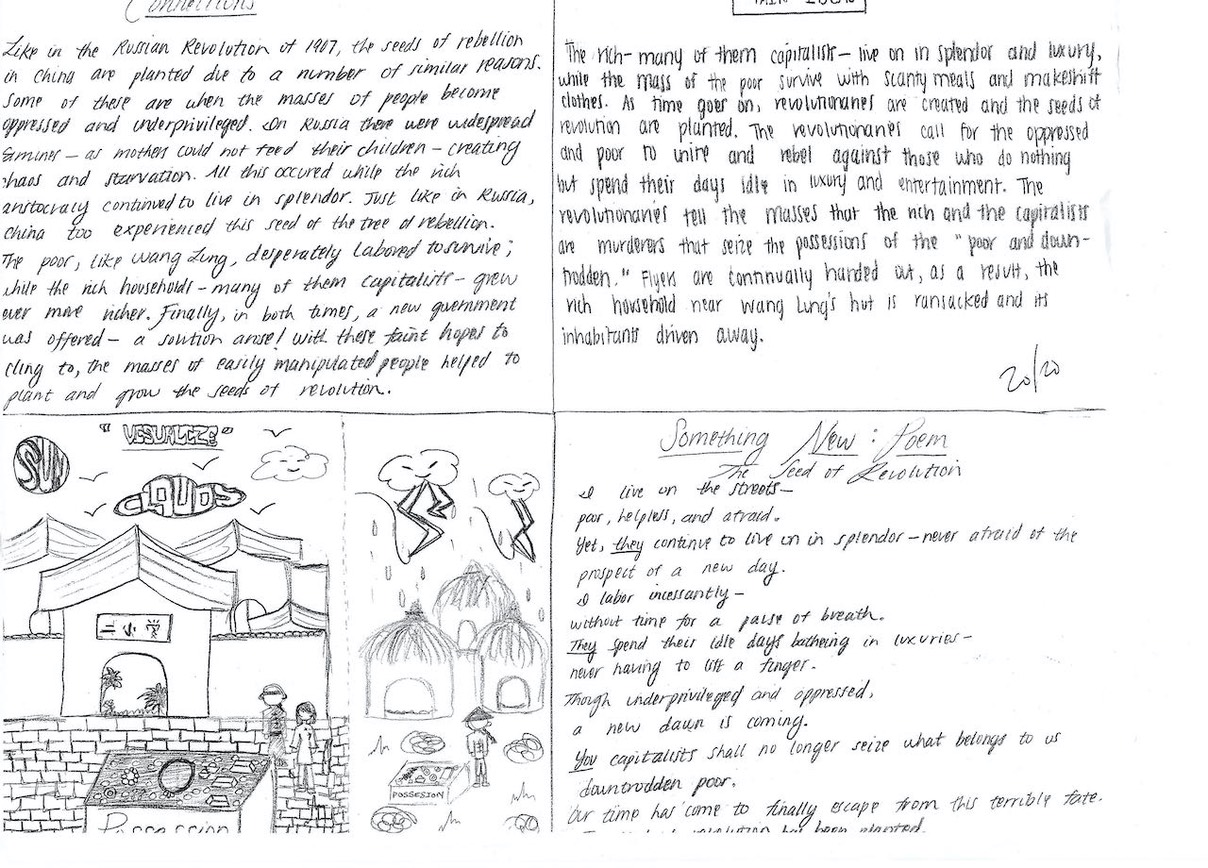 Connections
Like in the Russian Revolution of 1907, the seeds of rebellion
in China are planted due to a number of similar reasons.
Some of these are when the masses of people become
oppressed and underprivileged. In Russia there were widespread
famines – as mothers could not feed their children – creating
chaos and starvation. All this occured while the rich
aristocracy continued to live in splendor. Just like in Russia,
China too experienced this seed of the tree of rebellion.
The poor, like Wang Lung, desperately labored to survive;
while the rich households – many of them capitalists – grew
ever more richer. Finally, in both times, a new government
was offered – a soution arose! With these faint hopes to
cling to, the masses of easily manipulated people helped to
plant and grow the seeds of revolution.
MAIN IDEA
The rich – many of them capitalist – live on in splendor and luxury,
while the mass of the poor survive with scanty meals and makeshift
clothes. As time goes on, revolutionaries are created and the seeds of
revolution are planted. The revolutionaries call for the oppressed
and poor to unire and rebel against those who do nothing
but spend their days idle in luxury and entertainment. The
revolutionaries tell the masses that the rich and the capitalists
are murderers that seize the possessions of the "poor and down-
trodden." Flyers are continually handed out, as a result, the
rich household near Wang Lung's hut is ransacked and its
inhabitants driven away.
20/20
"VISUALIZE"
SUN
CLOUDS
POSSESION
Possession
Something New: Poem
The Seed of Revolution
I live on the streets –
poor, helpless, and afraid.
Yet, they continue to live on in splendor – never afraid of the
prospect of a new day.
I labor incessantly –
without time for a pause of breath.
They spend their idle days batheing in luxuries –
never having to lift a finger.
Though underprivileged and oppressed,
a new dawn is coming.
You capitalists shall no longer seize what belongs to us
downtrodden poor.
Our time has come to finally escape from this terrible fate.
revolution has been planted.